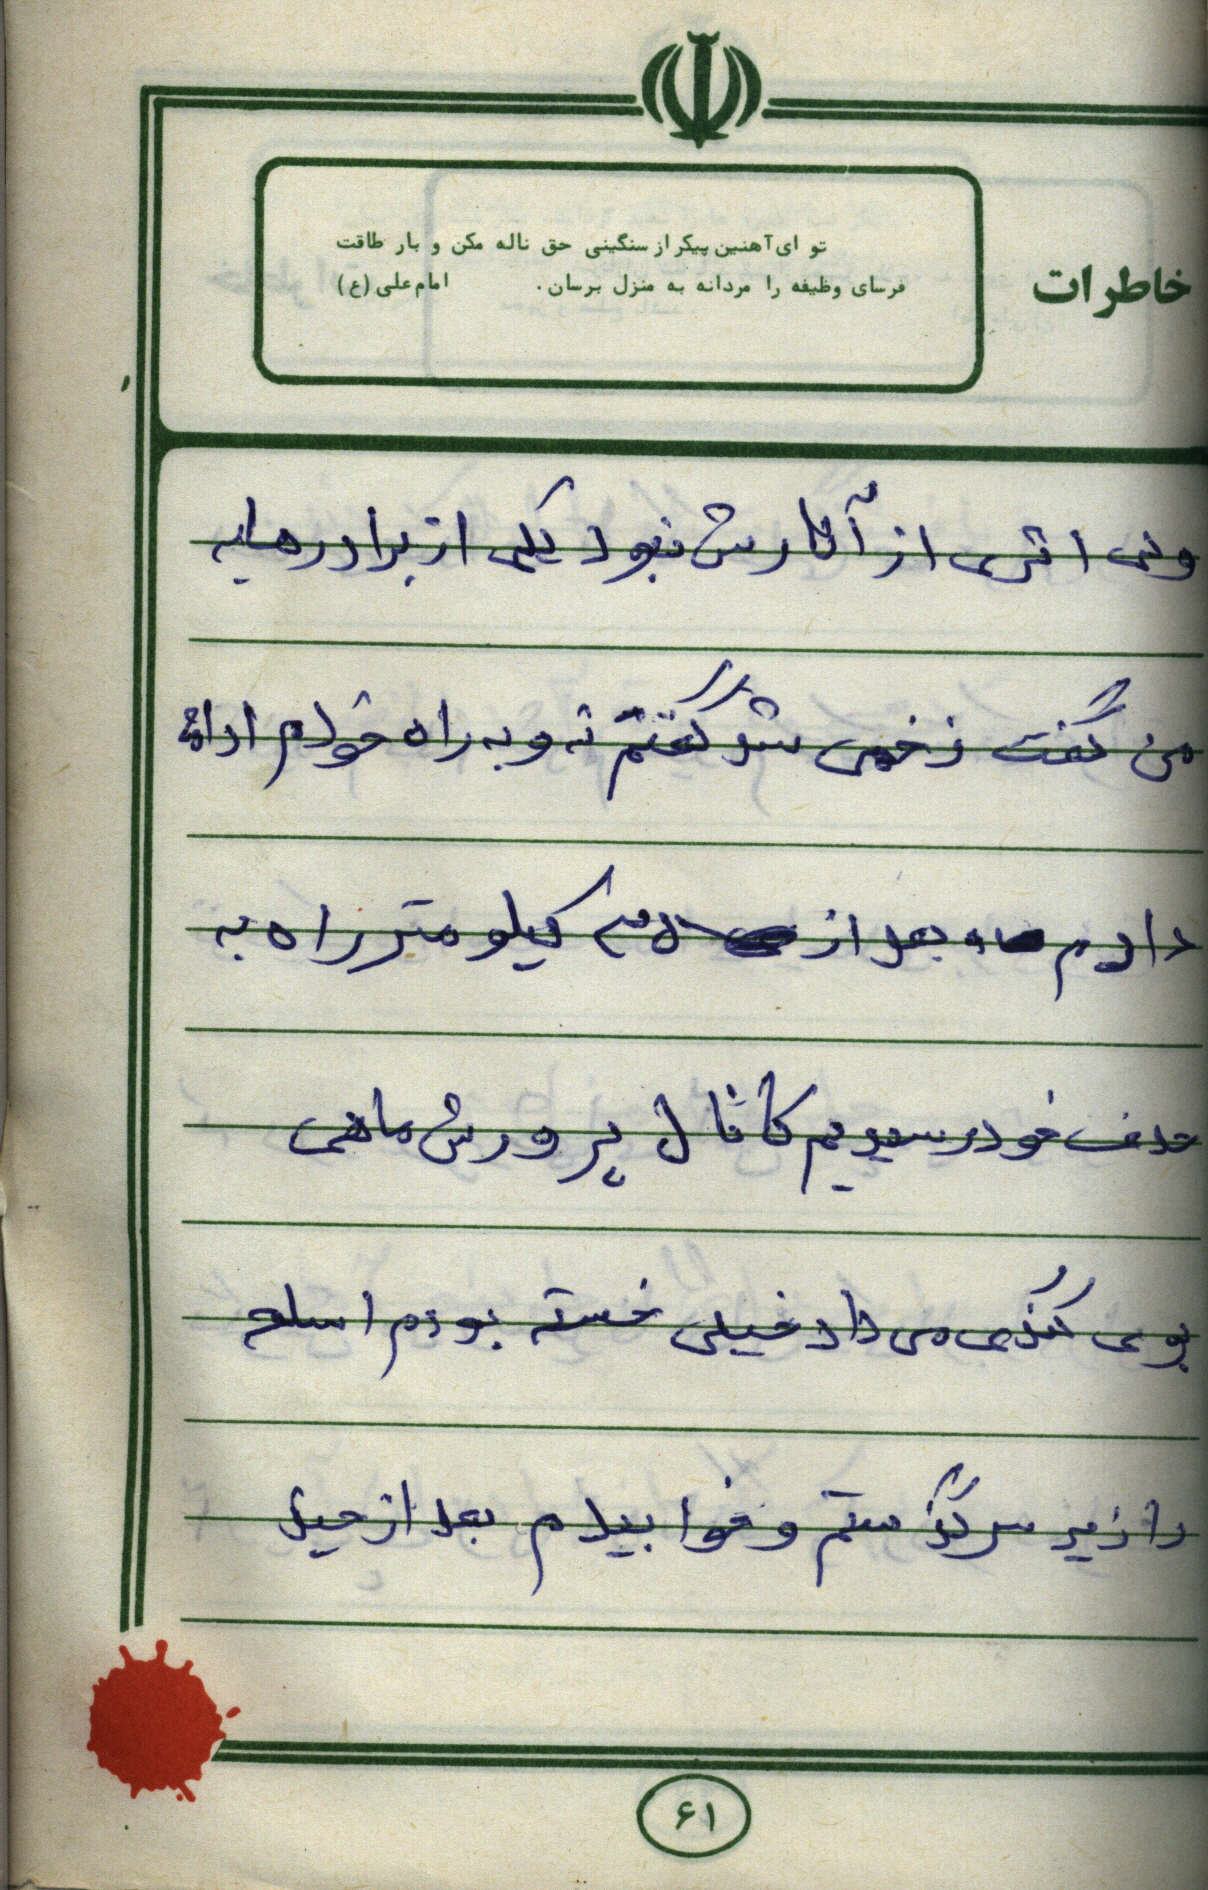 خاطرات
تو ای آهنین پیکر از سنگینی حق ناله مکن و بار طاقت
فرسای وظیفه را مردانه به منزل برسان. امام علی (ع)
ولی اثری از آثارش نبود یکی از برادرها به
من گفت زخمی شد گفتم نه و به راه خودم ادامه
دادم بعد از کیلومتر راه به
هدف خود رسیدیم کانال پرورش ماهی
بوی گندی می داد خیلی خسته بودم اسلحه
را زیر سر گذاشتم و خوابیدم بعد از
۶۱